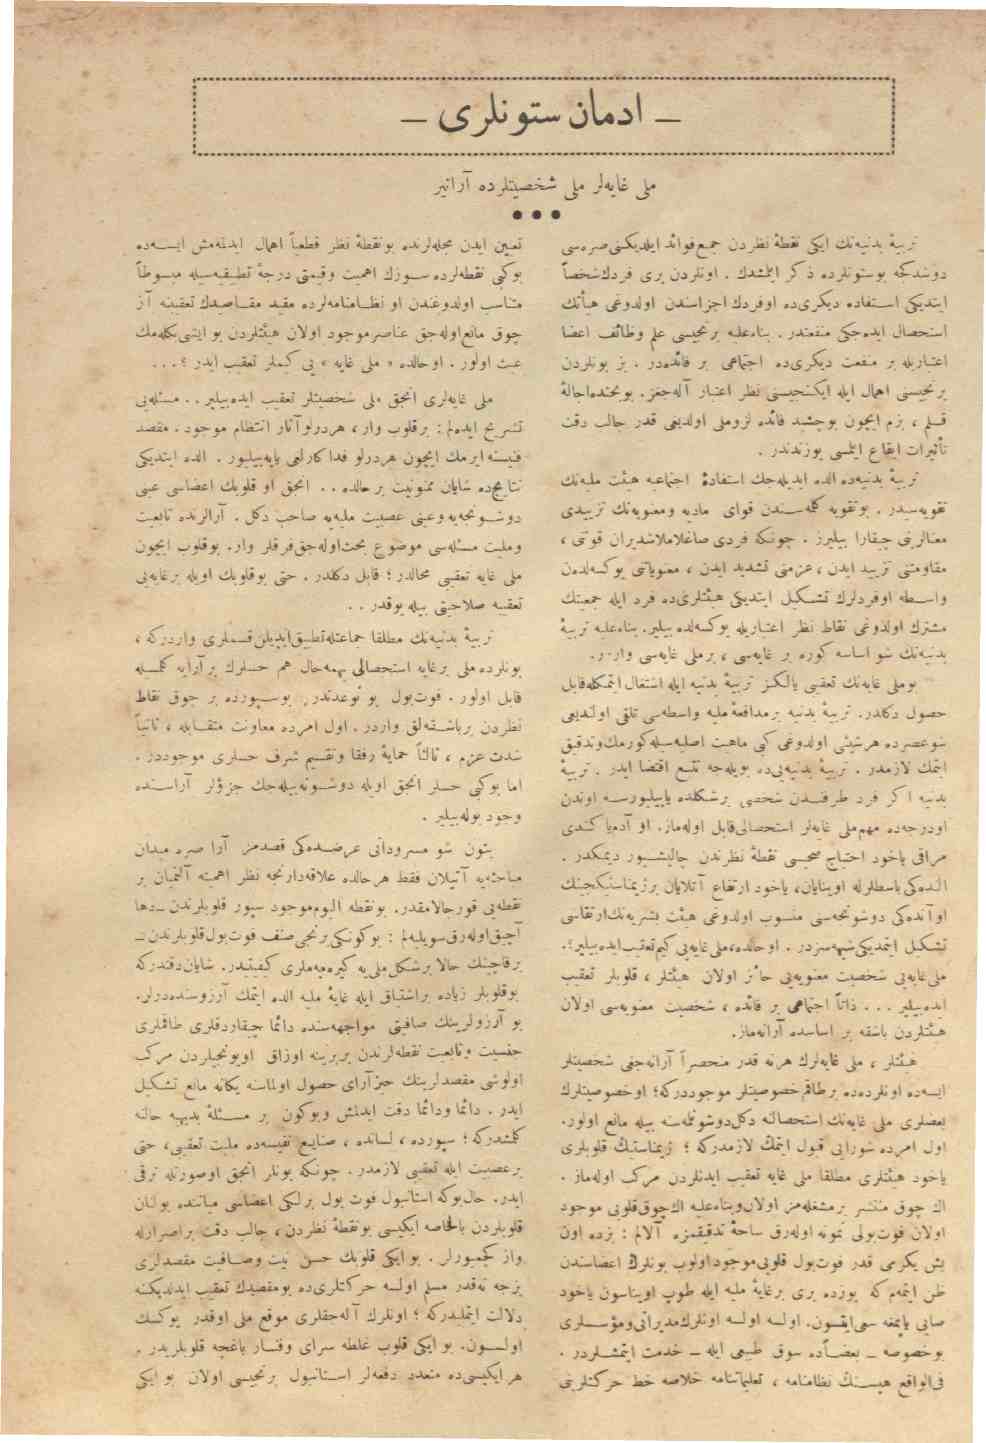 ـ ادمان ستونلری ـ
ملی غایه‌لر ملی شخصیتلرده آرانیر
تربیهٔ بدنیه‌نك ایکی نقطهٔ نظردن جمیع فوائد ایلدیکنی صره‌سی
دوشدکجه بوستونلرده ذکر ایتمشدك . اونلردن بری فردك شخصاً
ایتدیکی استفاده دیکری‌ده اوفردك اجزاسندن اولدوغی هیأتك
استحصال ایده‌جکی منفعتدر . بناءعلیه برنجیسی علم وظائف اعضا
اعتباریله بر منفعت دیکری‌ده اجتماعی بر فائده‌در . بز بونلردن
برنجیسنی اهمال ایله ایکنجیسنی نظر اعتبار آله‌جغز . بوبحثده اجالهٔ
قلم ، بزم ایچون بوچشید فائده لزوملی اولدیغی قدر جالب دقت
تأثیرات ایقاع ایتمسی یوزندندر .
تربیهٔ بدنیه‌ده الده ایدیله‌جك استفادهٔ اجتماعیه هیئت ملیه‌نك
تقویه‌سیدر . بوتقویه کلمه‌سندن قوای مادیه ومعنویه‌نك تزییدی
معنالرینی چیقارا بیلیرز . چونکه فردی صاغلاملاشدیران قوتنی ،
مقاومتنی تزیید ایدن ، عزمنی تشدید ایدن ، معنویاتنی یوکسه‌لدن
واسطه اوفردلرك تشکیل ایتدیکی هیئتلری‌ده فرد ایله جمعیتك
مشترك اولدوغی نقاط نظر اعتباریله یوکسه‌لده بیلیر. بناءعلیه تربیهٔ
بدنیه‌نك شو اساسه کوره بر غایه‌سی ، برملی غایه‌سی واردر.
بوملی غایه‌نك تعقیبی یالکز تربیهٔ بدنیه ایله اشتغال ایتمکله قابل
حصول دکلدر. تربیهٔ بدنیه برمدافعهٔ ملیه واسطه‌سی تلقی اولندیغی
شوعصرده هرشیئی اولدوغی کبی ماهیت اصلیه‌سیله کورمك وتدقیق
ایتمك لازمدر . تربیهٔ بدنیه‌یی‌ده بویله‌جه تتبع اقتضا ایدر . تربیهٔ
بدنیه اکر فرد طرفندن شخصی برشکلده یاپیلیورسه اوندن
اودرجه‌ده مهم ملی غایه‌لر استحصالی قابل اوله‌ماز. او آدم یا کندی
مراقی یاخود احتیاج صحیسی نقطهٔ نظرندن چالیشیور دیمکدر .
الده‌کی باسطلرله اوینایان، یاخود ارتفاع آتلایان برژیمناستیکجینك
اوآنده‌کی دوشونجه‌سی منسوب اولدوغی هیئت بشریه‌نك ارتقاسی
تشکیل ایتمدیکی شبهه‌سزدر . اوحالده، ملی غایه‌یی کیم تعقیب ایده‌بیلیر؟.
ملی غایه‌یی شخصیت معنویه‌یی حائز اولان هیئتلر ، قلوبلر تعقیب
ایده‌بیلیر ... ذاتاً اجتماعی بر فائده ، شخصیت معنویه‌سی اولان
هیئتلردن باشقه بر اساسده آرانه‌ماز.
هیئتلر ، ملی غایه‌لرك هرنه قدر منحصراً آرانه‌جغی شخصیتلر
ایسه‌ده اونلرده‌ده برطاقم خصوصیتلر موجوددرکه؛ اوخصوصیتلرك
بعضلری ملی غایه‌نك استحصالنه دکل دوشونلمه‌سنه بیله مانع اولور.
اول امرده شورایی قبول ایتمك لازمدرکه ؛ ژیمناستیك قلوبلری
یاخود هیئتلری مطلقا ملی غایه تعقیب ایدنلردن مرکب اوله‌ماز .
اك چوق منتشر برمشغله‌مز اولان وبناءعلیه اك چوق قلوبی موجود
اولان فوتبولی نمونه اوله‌رق ساحهٔ تدقیقمزه آلالم : بزده اون
بش یکرمی قدر فوت‌بول قلوبی موجود اولوب بونلرك اعضاسندن
ظن ایتمم که یوزده بری برغایهٔ ملیه ایله طوپ اویناسون یاخود
صایی یاپمغه سعی ایتسون. اولسه اولسه اونلرك مدیرانی ومؤسسلری
بوخصوصه ـ بعضاًده سوق طبیعی ایله ـ خدمت ایتمشلردر .
فی‌الواقع هپسنك نظامنامه ، تعلیماتنامه خلاصه خط حرکتلرینی
تعیین ایدن مجله‌لرنده بونقطهٔ نظر قطعیاً اهمال ایدلمه‌مش ایسه‌ده
بوکبی نقطه‌لرده سوزك اهمیت وقیمتی درجهٔ تطبیقیه‌سیله مبسوطاً
متناسب اولدوغندن او نظامنامه‌لرده مقید مقاصدك تعقیبنه آز
چوق مانع اوله‌جق عناصر موجود اولان هیئتلردن بو ایشی بکله‌مك
عبث اولور . اوحالده « ملی غایه » یی کیملر تعقیب ایدر ؟...
ملی غایه‌لری انجق ملی شخصیتلر تعقیب ایده‌بیلیر .. مسئله‌یی
تشریح ایده‌لم : برقلوب وار ، هردرلو آثار انتظام موجود . مقصد
فنیسنه ایرمك ایچون هردرلو فداکارلغی یاپه‌بیلیور . الده ایتدیکی
نتایج‌ده شایان ممنونیت بر حالده .. انجق او قلوبك اعضاسی عینی
دوشونجه‌یه وعینی عصبیت ملیه‌یه صاحب دکل . آرالرنده تابعیت
وملیت مسئله‌سی موضوع بحث اوله‌جق فرقلر وار. بوقلوب ایچون
ملی غایه تعقیبی محالدر ؛ قابل دکلدر . حتی بوقلوبك اویله برغایه‌یی
تعقیبه صلاحیتی بیله یوقدر ..
تربیهٔ بدنیه‌نك مطلقا جماعتله تطبیق ایدیلن قسملری واردرکه ،
بونلرده ملی برغایه استحصالی بهمه‌حال هم حسلرك برآرایه کلمسله
قابل اولور . فوت‌بول بو نوعدندر، بوسپورده بر چوق نقاط
نظردن برباشقه‌لق واردر. اول امرده معاونت متقابله ، ثانیاً
شدت عزم ، ثالثاً حمایهٔ رفقا ونقسیم شرف حسلری موجوددر .
اما بوکبی حسلر انجق اویله دوشونه‌بیله‌جك جزؤلر آراسنده
وجود بوله‌بیلیر .
بتون شو مسروداتی عرضده‌کی قصدمز آرا صره میدان
مباحثه‌یه آتیلان فقط هرحالده علاقه‌دارنجه نظر اهمیته آلنمیان بر
نقطه‌یی قورجالامقدر. بونقطه الیوم موجود سپور قلوبلرندن ـ دها
آچیق اوله‌رق سویلیه‌لم : بوکونکی برنجی صنف فوت‌بول قلوبلرندن ـ
برقاچینك حالا برشکل ملی‌یه کیره‌مه‌ملری کیفیتیدر. شایان دقتدرکه
بوقلوبلر زیاده براشتیاق ایله غایهٔ ملیه الده ایتمك آرزوسنده‌درلر.
بو آرزولرینك صافیتی مواجهه‌سنده دائما چیقاردقلری طاقملری
جنسیت وتابعیت نقطه‌لرندن بربرینه اوزاق اویونجیلردن مرکب
اولوشی مقصدلرینك حیزآرای حصول اولماسنه یکانه مانع تشکیل
ایدر . دائما ودائما دقت ایدلمش وبوکون بر مسئلهٔ بدیهیه حالنه
کلمشدرکه ؛ سپورده ، لسانده ، صنایع نفیسه‌ده ملیت تعقیبی، حتی
برعصبیت ایله تعقیبی لازمدر . چونکه بونلر انجق اوصورتله ترقی
ایدر. حال‌بوکه استانبول فوت بول برلکی اعضاسی میاننده بولنان
قلوبلردن بالخاصه ایکیسی بونقطهٔ نظردن ، جالب دقت براصرارله
واز کچمیورلر . بوایکی قلوبك حسن نیت وصافیت مقصدلری
بزجه نه‌قدر مسلم اولسه حرکتلری‌ده بومقصدك تعقیب ایدلدیکنه
دلالت ایتملیدرکه ؛ اونلرك آله‌جقلری موقع ملی اوقدر یوکسك
اولسون. بو ایکی قلوب غلطه سرای وفنار باغچه قلوبلریدر .
هر ایکیسی‌ده متعدد دفعه‌لر استانبول برنجیسی اولان بو ایکی